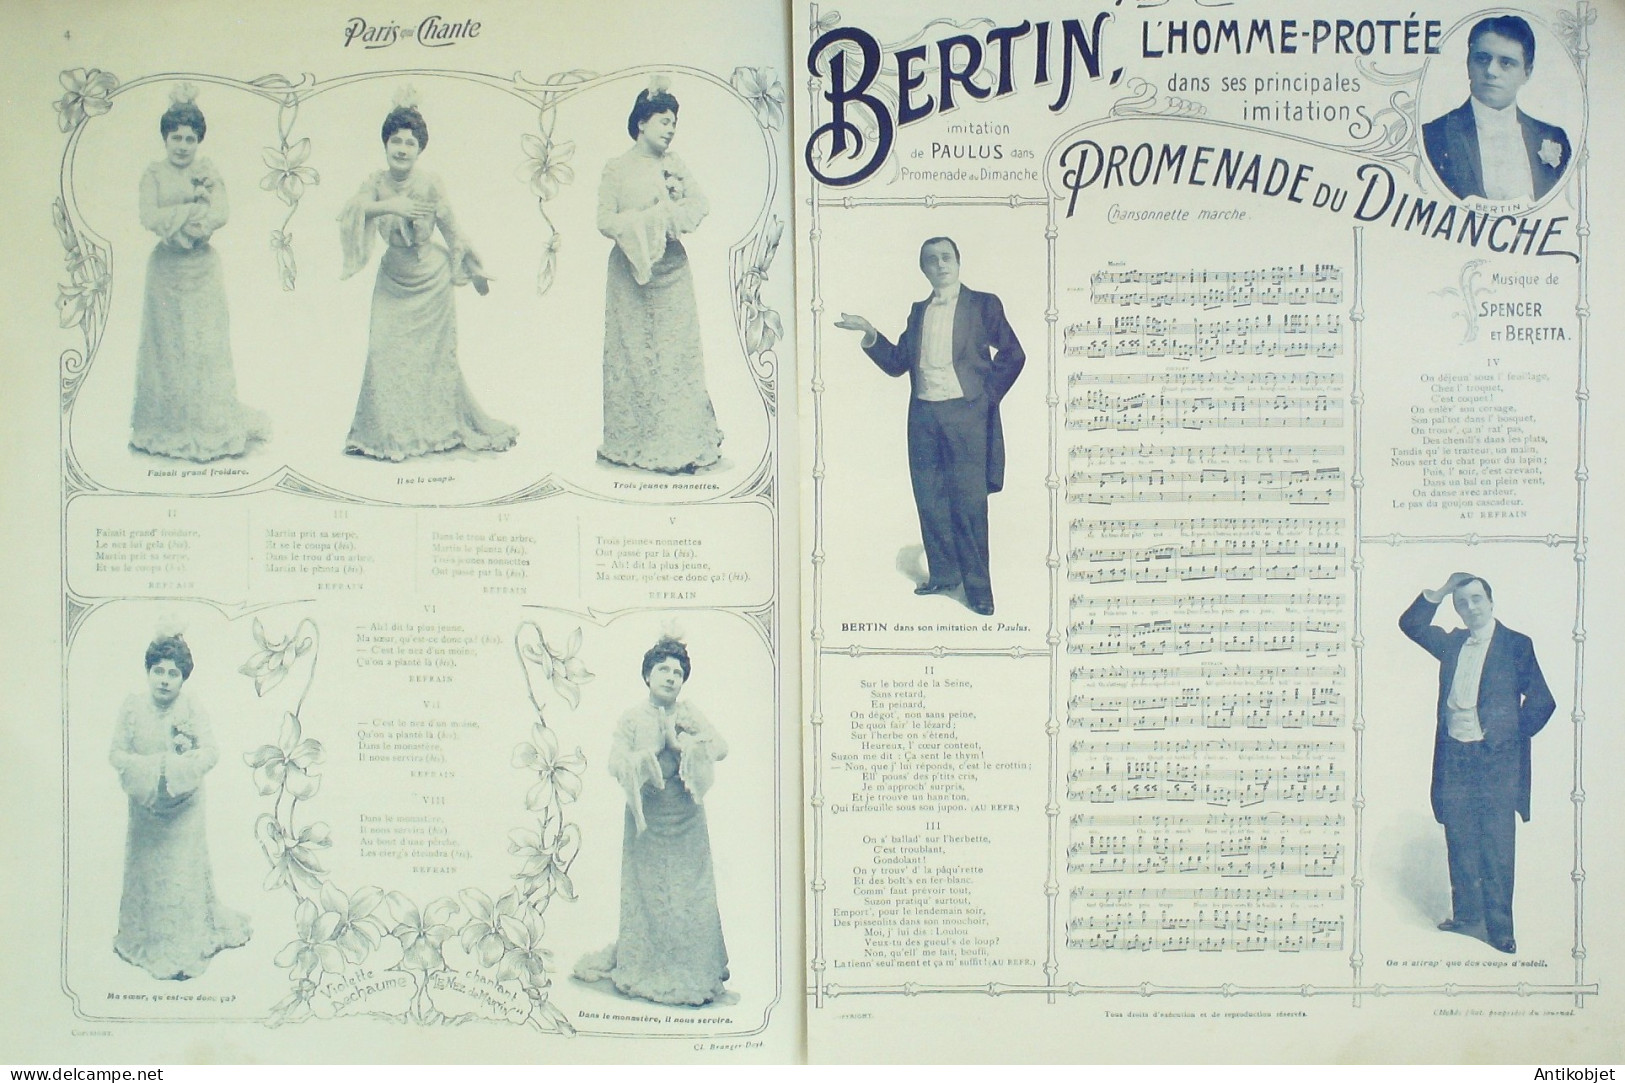 4
Paris qui Chante
Faisait grand froidure.
Il se le coupa.
Trois jeunes nonnettes.
II
Faisait grand' froidure,
Le nez lui gela (bis).
Martin prit sa serpe,
Et se le coupa (bis).
REFRAIN
III
Martin prit sa serpe,
Et se le coupa (bis)
Dans le trou d'un arbre,
Martin le planta (bis).
REFRAIN
IV
Dans le trou d'un arbre,
Martin le planta (bis).
Trois jeunes nonnettes
Ont passé par là (bis).
REFRAIN
V
Trois jeunes nonnettes
Ont passé par là (bis).
— Ah! dit la plus jeune,
Ma sœur, qu'est-ce donc ça? (bis)
REFRAIN
VI
— Ah! dit la plus jeune,
Ma sœur, qu'est-ce donc ça? (bis).
— C'est le nez d'un moine,
Qu'on a planté là (bis).
REFRAIN
VII
— C'est le nez d'un moine,
Qu'on a planté là (bis).
Dans le monastère,
Il nous servira (bis).
REFRAIN
VIII
Dans le monastère,
Il nous servira (bis).
Au bout d'une perche,
Les cierg's éteindra (bis).
REFRAIN
Ma sœur, qu'est-ce donc ça?
Violette Dechaume
chantant
"Le Nez de Martin"
Dans le monastère, il nous servira.
COPYRIGHT.
Cl. Branger-Doyé.
BERTIN, L'HOMME-PROTÉE
dans ses principales
imitations
BERTIN
imitation
de PAULUS dans
Promenade du Dimanche
PROMENADE DU DIMANCHE
Chansonnette marche.
Musique de
SPENCER
ET BERETTA.
BERTIN dans son imitation de Paulus.
II
Sur le bord de la Seine,
Sans retard,
En peinard,
On dégot', non sans peine,
De quoi fair' le lézard;
Sur l'herbe on s'étend,
Heureux, l' cœur content,
Suzon me dit : Ça sent le thym!
— Non, que j' lui réponds, c'est le crottin;
Ell' pouss' des p'tits cris,
Je m'approch' surpris,
Et je trouve un hann'ton,
Qui farfouille sous son jupon. (AU REFR.)
III
On s' ballad' sur l'herbette,
C'est troublant,
Gondolant!
On y trouv' d' la pâqu'rette
Et des boît's en fer-blanc.
Comm' faut prévoir tout,
Suzon pratiqu' surtout,
Emport', pour le lendemain soir,
Des pissenlits dans son mouchoir,
Moi, j' lui dis : Loulou
Veux-tu des gueul's de loup?
Non, qu'ell' me fait, bouffi,
La tienn' seul'ment et ça m' suffit! (AU REFR.)
IV
On déjeun' sous l' feuillage,
Chez l' troquet,
C'est coquet!
On enlèv' son corsage,
Son pal'tot dans l' bosquet,
On trouv', ça n' rat' pas,
Des chenill's dans les plats,
Tandis qu' le traiteur, un malin,
Nous sert du chat pour du lapin;
Puis, l' soir, c'est crevant,
Dans un bal en plein vent,
On danse avec ardeur,
Le pas du goujon cascadeur.
AU REFRAIN
On n'attrap' que des coups d'soleil.
Tous droits d'exécution et de reproduction réservés.
Clichés phot. propriété du journal.
Antikobjet